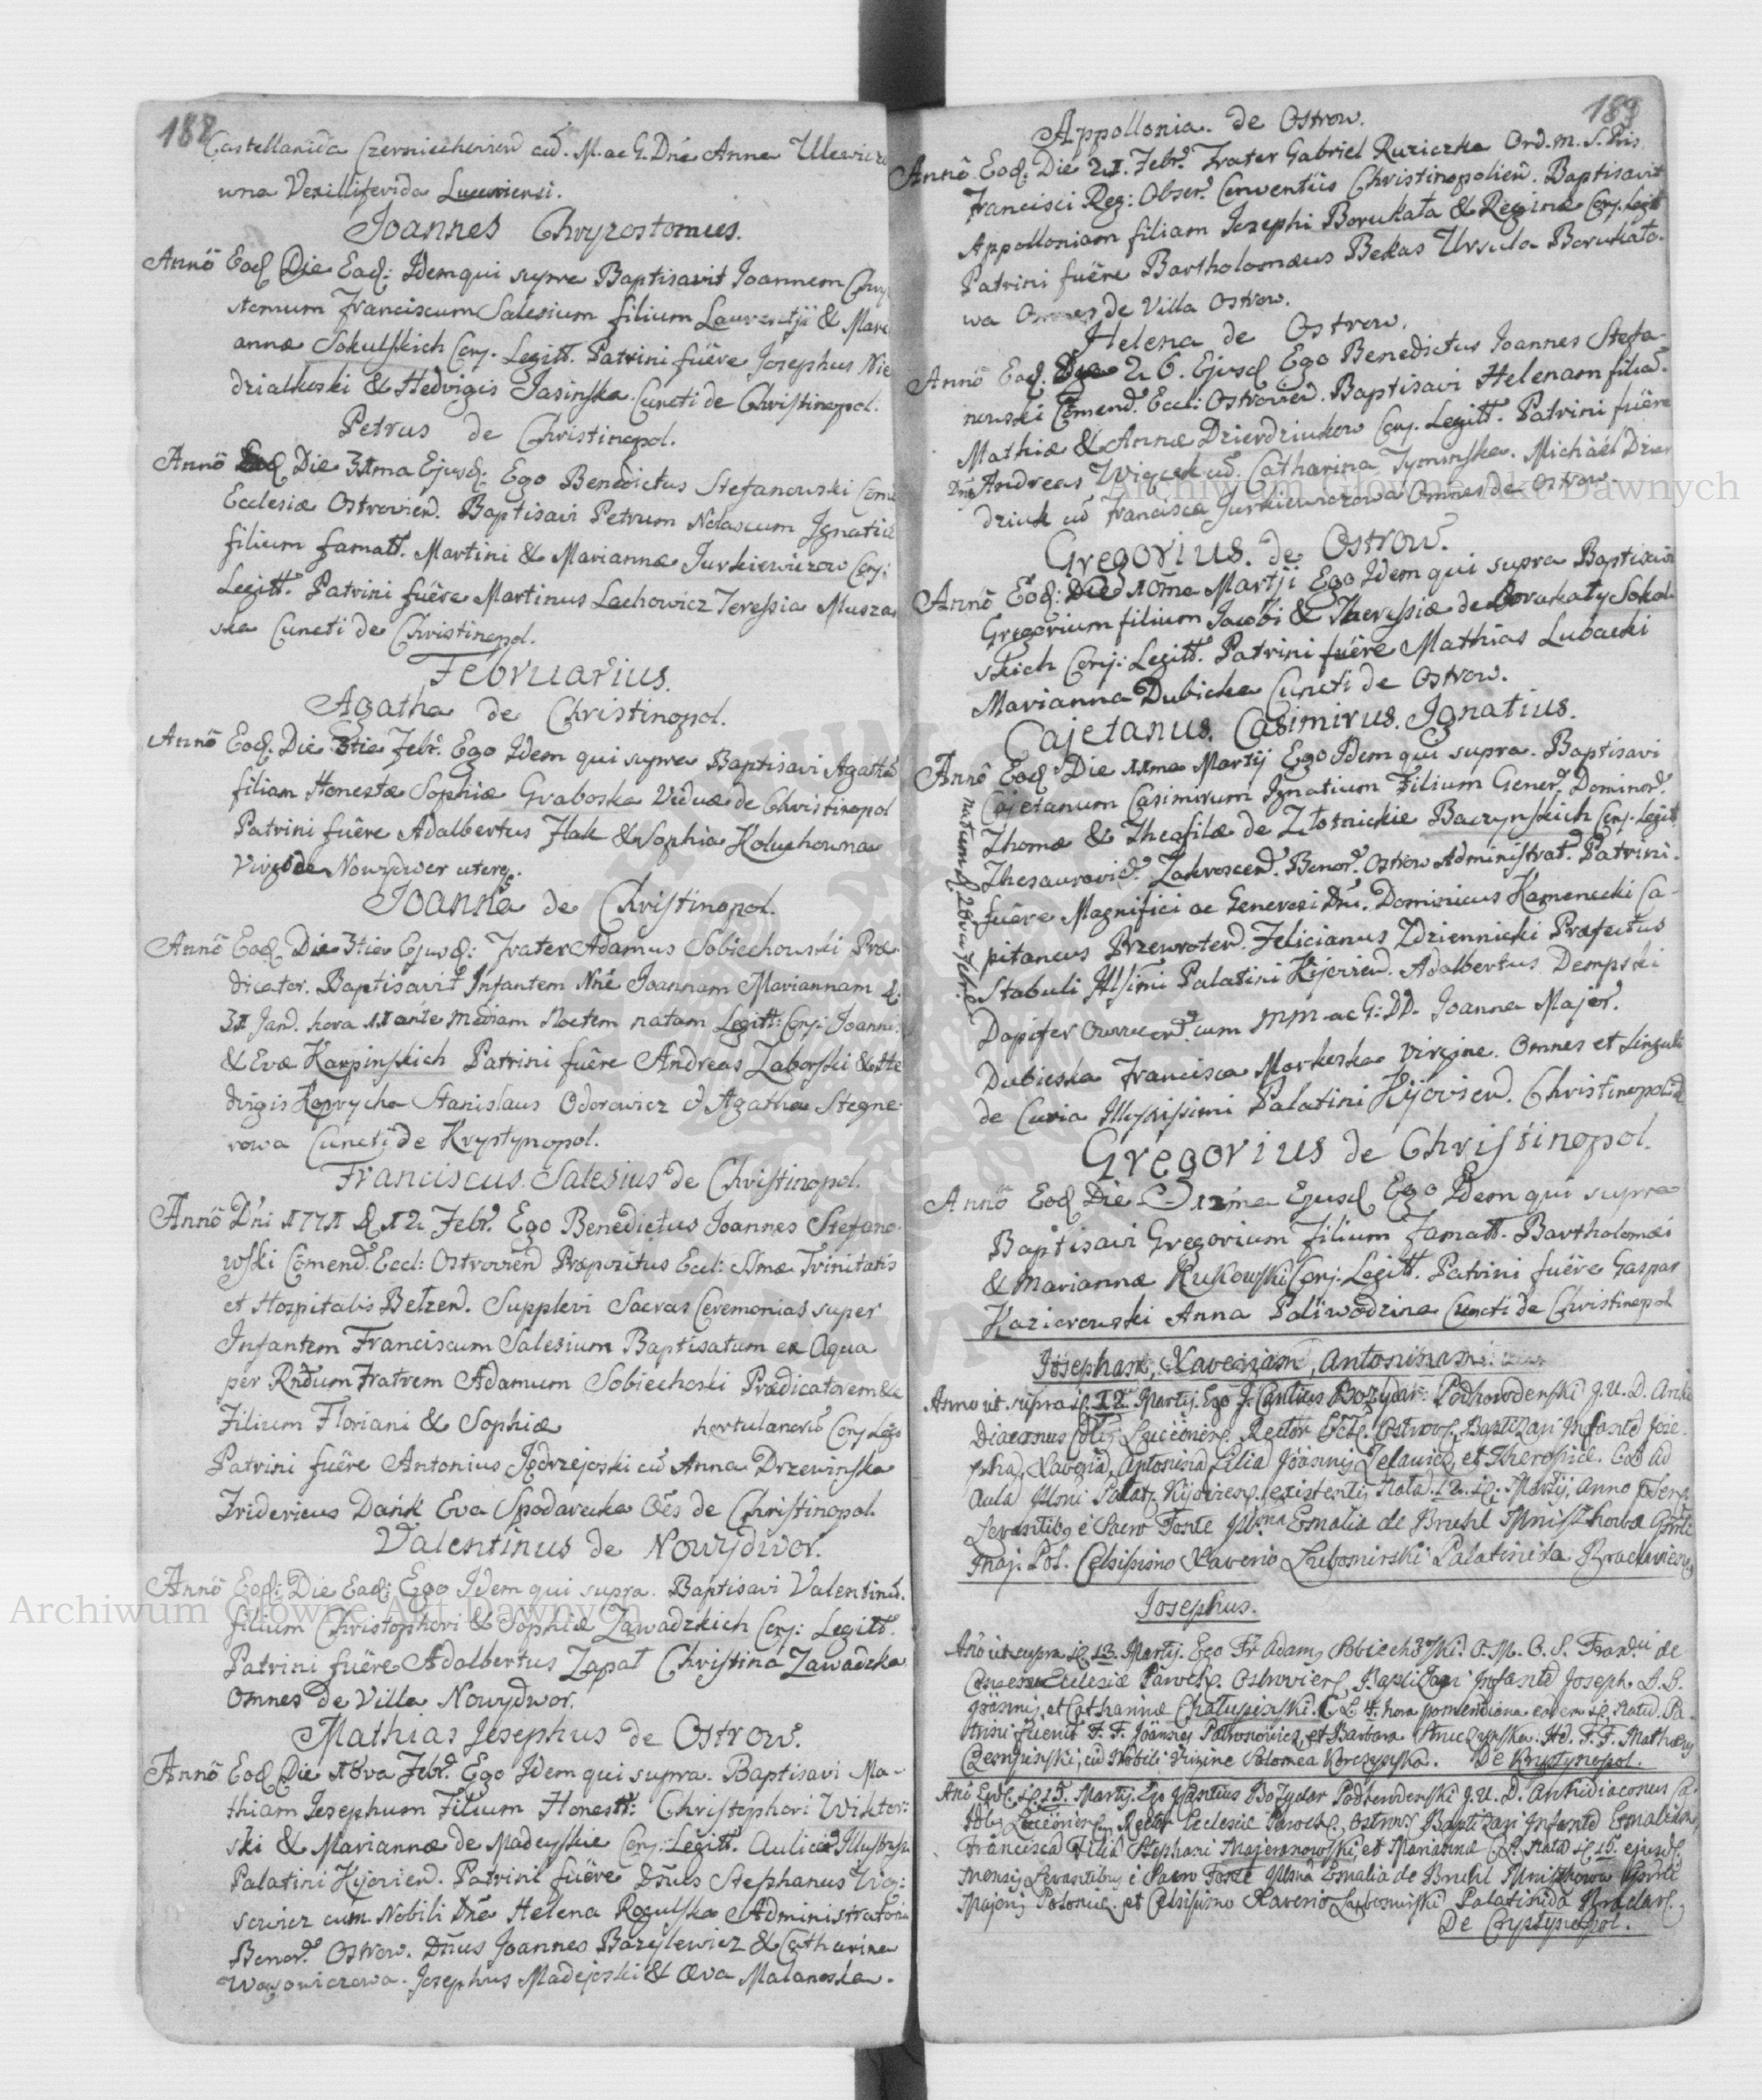 188
Castellanida Czerniechovien cū. M. ac G. Dnē Anna Ulewicz
wna Vexillifevida Luceoriensi.
Joannes Chryzostomus.
Annô Eod Die Ead: Idem qui supra Baptisavit Joannem Chry
stomum Franciscum Salesium filium Laurentji & Mari
annæ Sokulskich Conj. Legitt. Patrini fuêre Josephus Nie
dzialkoski & Hedvigis Jasinska. Cuncti de Christinopol.
Petrus de Christinopol.
Annô Eod Die 31ma Ejusd: Ego Benedictus Stefanowski Com̄
Ecclesiæ Ostrovien. Baptisavi Petrum Nolascum Ignatiū
filium famatt. Martini & Mariannæ Jurkiewiczow Conj:
Legitt. Patrini fuêre Martinus Lachowicz Teressia Musza
ska Cuncti de Christinopol.
Februarius.
Agatha de Christinopol.
Annô Eod. Die 3tia Febr. Ego Idem qui supra Baptisavi Agathā
filiam Honestæ Sophiæ Graboska Viduæ de Christinopol
Patrini fuêre Adalbertus Hak & Sophia Koluchowna
Virg de Nowydwor uterq.
Joanna de Christinopol.
Annô Eod. Die 3tia Ejusd: Frater Adamus Sobiechowski Præ-
dicator. Baptisavit Infantem Nñe Joannam Mariannam d:
31 Jan. hora 11 ante mediam Noctem natam Legitt: Conj: Joanni.
& Evæ Karpinskich Patrini fuêre Andreas Zaborski & He
dvigis Koprycha Stanislaus Odorowicz & Agatha Stegne-
rowa Cuncti de Krystynopol.
Franciscus Salesius de Christinopol.
Annô Dni 1771 d 12 Febr. Ego Benedictus Joannes Stefano-
wski Comend. Eccl: Ostrovien Præpozitus Eccl: SSmæ Trinitatis
et Hospitalis Belzen. Supplevi Sacras Ceremonias super
Infantem Franciscum Salesium Baptisatum ex Aqua
per Rndum Fratrem Adamum Sobiechoski Prædicatorem &c
Filium Floriani & Sophiæ hortulanorū Conj Legit
Patrini fuêre Antonius Jędrzejoski cū Anna Drzewinska
Fridericus Dank Eva Spodarecka Oēs de Christinopol.
Valentinus de Nowydwor.
Annô Eod: Die Ead: Ego Idem qui supra. Baptisavi Valentinū.
filium Christophori & Sophiæ Zawadzkich Conj: Legitt.
Patrini fuêre Adalbertus Zapat Christina Zawadzka
Omnes de Villa Nowydwor.
Mathias Josephus de Ostrow.
Annô Eod Die 18va Febr. Ego Idem qui supra. Baptisavi Ma-
thiam Josephum Filium Honestt: Christophori Wiktor:
ski & Mariannæ de Madeyskie Conj: Legitt. Aulicor Illustrissi
Palatini Kijovien. Patrini fuêre Dnūs Stephanus Woj:
sewicz cum Nobili Dnā Helena Rogulska Administratori
Bonor. Ostrow. Dnūs Joannes Bazylewicz & Catharina
Waxowiczowa. Josephus Madejoski & Æva Malanoska.
189
Appollonia. de Ostrow.
Annô Eod. Die 21. Febr. Frater Gabriel Ruziczka Ord. M. S. Pris
Francisci Reg: Obser. Conventûs Christinopolien. Baptisavit
Appolloniam filiam Josephi Borukata & Reginæ Conj. Legit
Patrini fuêre Bartholomæus Bekas Ursula Borukato-
wa Omnes de Villa Ostrow.
Helena de Ostrow.
Annô Eod. Die 26. Ejusd Ego Benedictus Joannes Stefa-
nowski Comend. Eccl: Ostrovien. Baptisavi Helenam filiā.
Mathiæ & Annæ Dzierdziukow Conj. Legitt. Patrini fuêre
Dnūs Andreas Zwięcek cū. Catharina Tyminska. Michaël Dzier
dziuk cū Francisca Jurkiewiczowa Omnes de Ostrow.
Gregorius. de Ostrow.
Annô Eod: Die 10ma Martji Ego Idem qui supra Baptizavi
Gregorium filium Jacobi & Theressiæ de Borukaty Sokol-
skich Conj: Legitt. Patrini fuêre Mathias Lubacki
Marianna Dubicka Cuncti de Ostrow.
Cajetanus. Casimirus. Ignatius.
Annô Eod Die 11ma Martij Ego Idem qui supra. Baptisavi
Cajetanum Casimirum Ignatium Filium Gener. Dominor.
Thomæ & Theofilæ de Złotnickie Baczynskich Conj. Legit
Thesaurovid. Zakroscen. Bonor. Ostrow Administrat. Patrini.
fuêre Magnifici ac Generosi Dni. Dominicus Kamenecki Ca-
pitaneus Przewroten. Felicianus Zdziennicki Præfectus
Stabuli Illsimi Palatini Kijovien. Adalbertus Dempski
Dapifer Owrucen. cum MM ac G: DD. Joanna Major.
Dubieska Francisca Morkoska Virgine. Omnes et Singuli
de Curia Illustrissimi Palatini Kijovien. Christinopolien
natum d. 28va Febr.
Gregorius de Christinopol.
Annô Eod Die 12ma Ejusd Ego Idem qui supra
Baptisavi Gregorium filium Famatt. Bartholomæi
& Mariannæ Rukowski Conj: Legitt. Patrini fuêre Gaspar
Kazierowski Anna Paliwodzina Cuncti de Christinopol
Josepham, Xaveriam, Antoninam
Anno ut supra d. 12 Martij. Ego J. Cantius Bozydar Podhorodenski J. U. D. Archi
Diaconus Luceoriens. Rector Eccl. Ostrov. Baptizavi Infantē Jose-
phā, Xaveriā, Antoninā Filiā Joannis Zelawicz, et Theresiæ. C. L. ad
Aulā Illmi Palat. Kijovien. existentiū Natā. 12. d. Martij, Anno p̄senti
Levantibq é Sacro Fonte Illma Emalia de Bruhl Mniszchowa Gnrli
Maj. Pol. Celsissimo Xaverio Lubomirski Palatinida Braclavien.
Josephus.
Año ut supra d. 13. Martij. Ego Fr Adam Sobiechowski. O. M. O. S. Franci de
Consensu Ecclesiæ Paroch. Ostrovien. Baptizavi Infantē Joseph D. B.
Joannis, et Catharinæ Chałupinski. C. L. 4. hora pomeridiana eadem d. Natū. Pa-
trini fuerūt F. F. Joannes Patronowicz, et Barbara Struczynska. Ad. F. F. Mathæus
Czempinski, cū Nobili Virgine Salomea Korczynska. De Krystynopol.
Año Eod. d. 15. Martij. Ego J Cantius Bozydar Podhorodenski J. U. D. Archidiaconus Ca-
thlis Luceorien. Rector Ecclesiæ Paroch. Ostrov. Baptizavi Infantē Emaliam
Franciscā Filiā Stephani Majeranowski, et Mariannæ C. L. Natā d. 15. ejusd.
Mensis Levantibus é Sacro Fonte Illma Emalia de Bruhl Mniszchowa Gnrli
Majoris Poloniæ. et Celsissimo Xaverio Lubomirski Palatinida Braclav.
De Crystynopol.
Archiwum Główne Akt Dawnych
Archiwum Główne Akt Dawnych